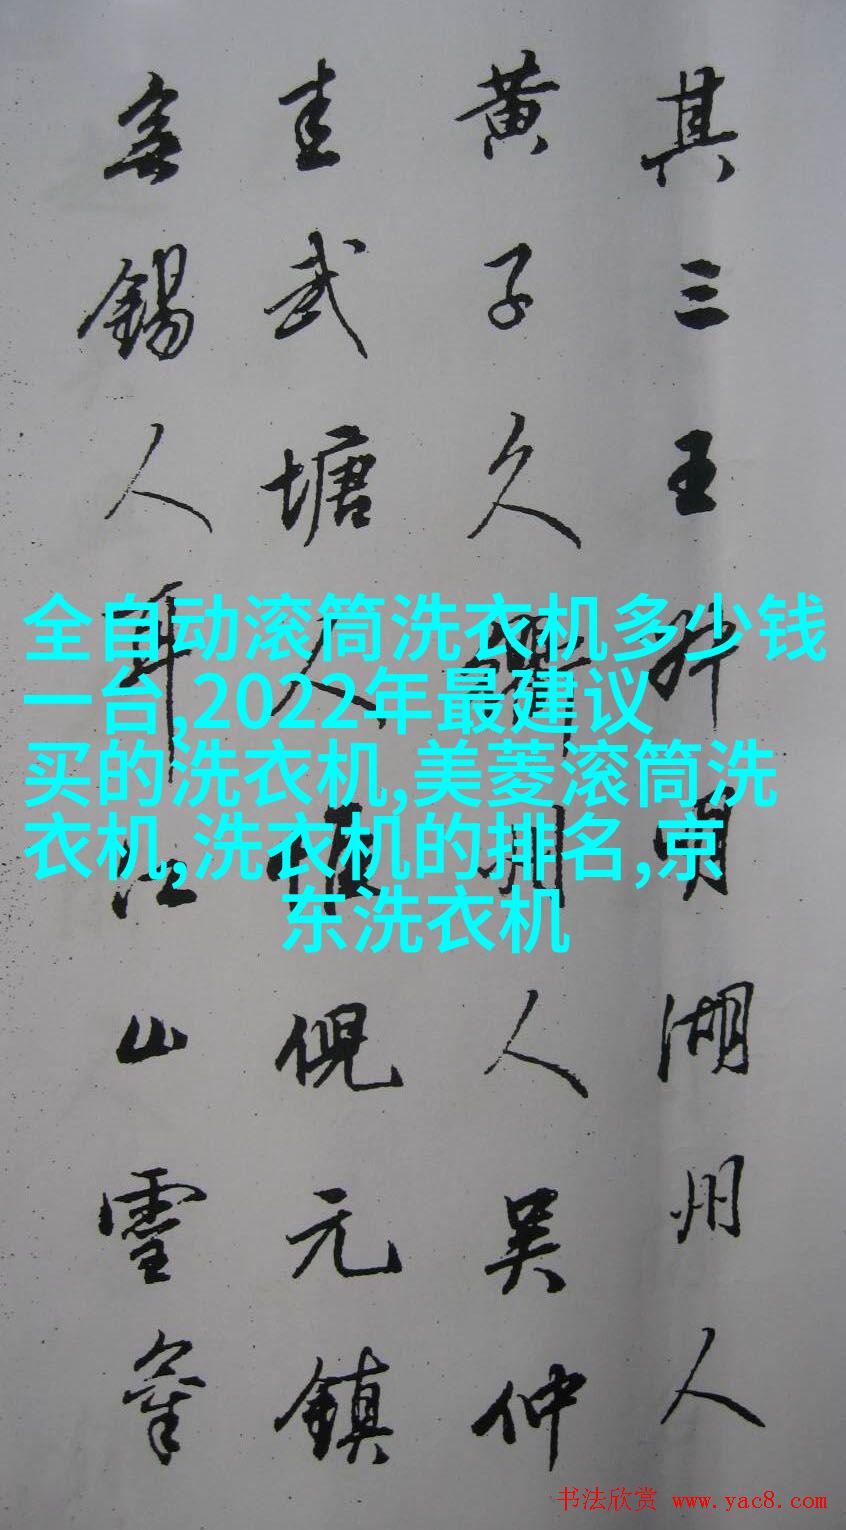 其三王叔明湖州人
黄子久衢州人吴仲
圭武塘人惟倪元鎮
無錫人耳江山雪
全自动滚筒洗衣机多少钱
一台,2022年最建议
买的洗衣机,美菱滚筒洗
衣机,洗衣机的排名,京
东洗衣机
书法欣赏 www.yac8.com